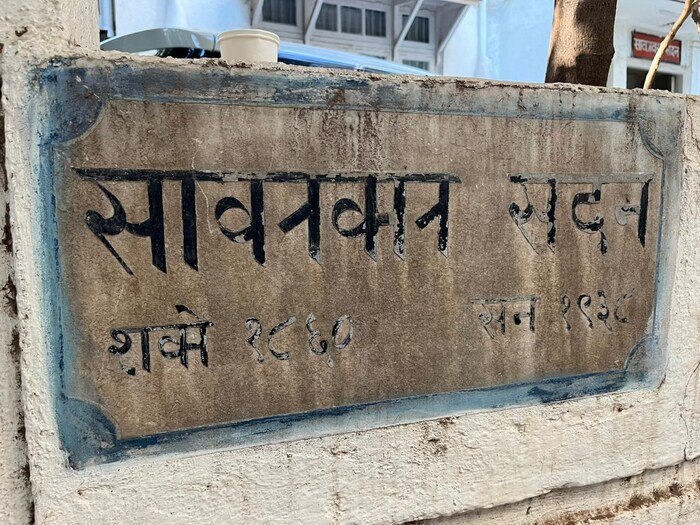 सावनकान सदन
शके १८६० सन १९३८